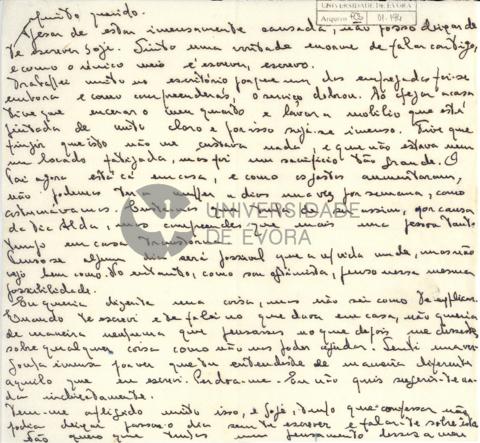 UNIVERSIDADE DE EVORA
Arquivo PCS 01-194
Muito querido.
Apesar de estar imensamente cansada, não posso deixar de
te escrever hoje. Sinto uma vontade enorme de falar contigo,
e como o único meio é escrever, escrevo.
Trabalhei muito no escritório porque um dos empregados foi-se
embora e como compreenderás, o serviço dobrou. Ao chegar a casa
tive que encerar o meu quarto e lavar a mobília que está
pintada de muito claro e por isso suja-se imenso. Tive que
fingir que isto não me custava nada, e que não estava nem
um bocado fatigada, mas foi um sacrifício tão grande. O
Pai agora está cá em casa, e como os gastos aumentaram,
não podemos ter a mulher a dias uma vez por semana, como
costumávamos.
da tia Alda, mas compreendes que mais uma pessoa tanto
tempo em casa transtorna.
Penso se algum dia será possível que a vida mude, mas não
vejo bem como. No entanto, como sou optimista, penso nessa mesma
possibilidade.
Eu queria dizer-te uma coisa, mas não sei como te explicar.
Quando te escrevi e te falei no que dava em casa, não queria
de maneira nenhuma que pensasses no que depois me disseste
sobre qualquer coisa como não nos poder ajudar. Senti uma ver-
gonha imensa por ver que tu entendeste de maneira diferente
aquilo que eu escrevi. Perdoa-me. Eu não quis sugerir-te na-
da indirectamente.
Tem-me afligido muito isso, e hoje, tenho que confessar não
podia deixar passar o dia sem te escrever e falar-te sobre isto
Não quero que tenhas um pensamento desses, nem
UNIVERSIDADE
DE EVORA